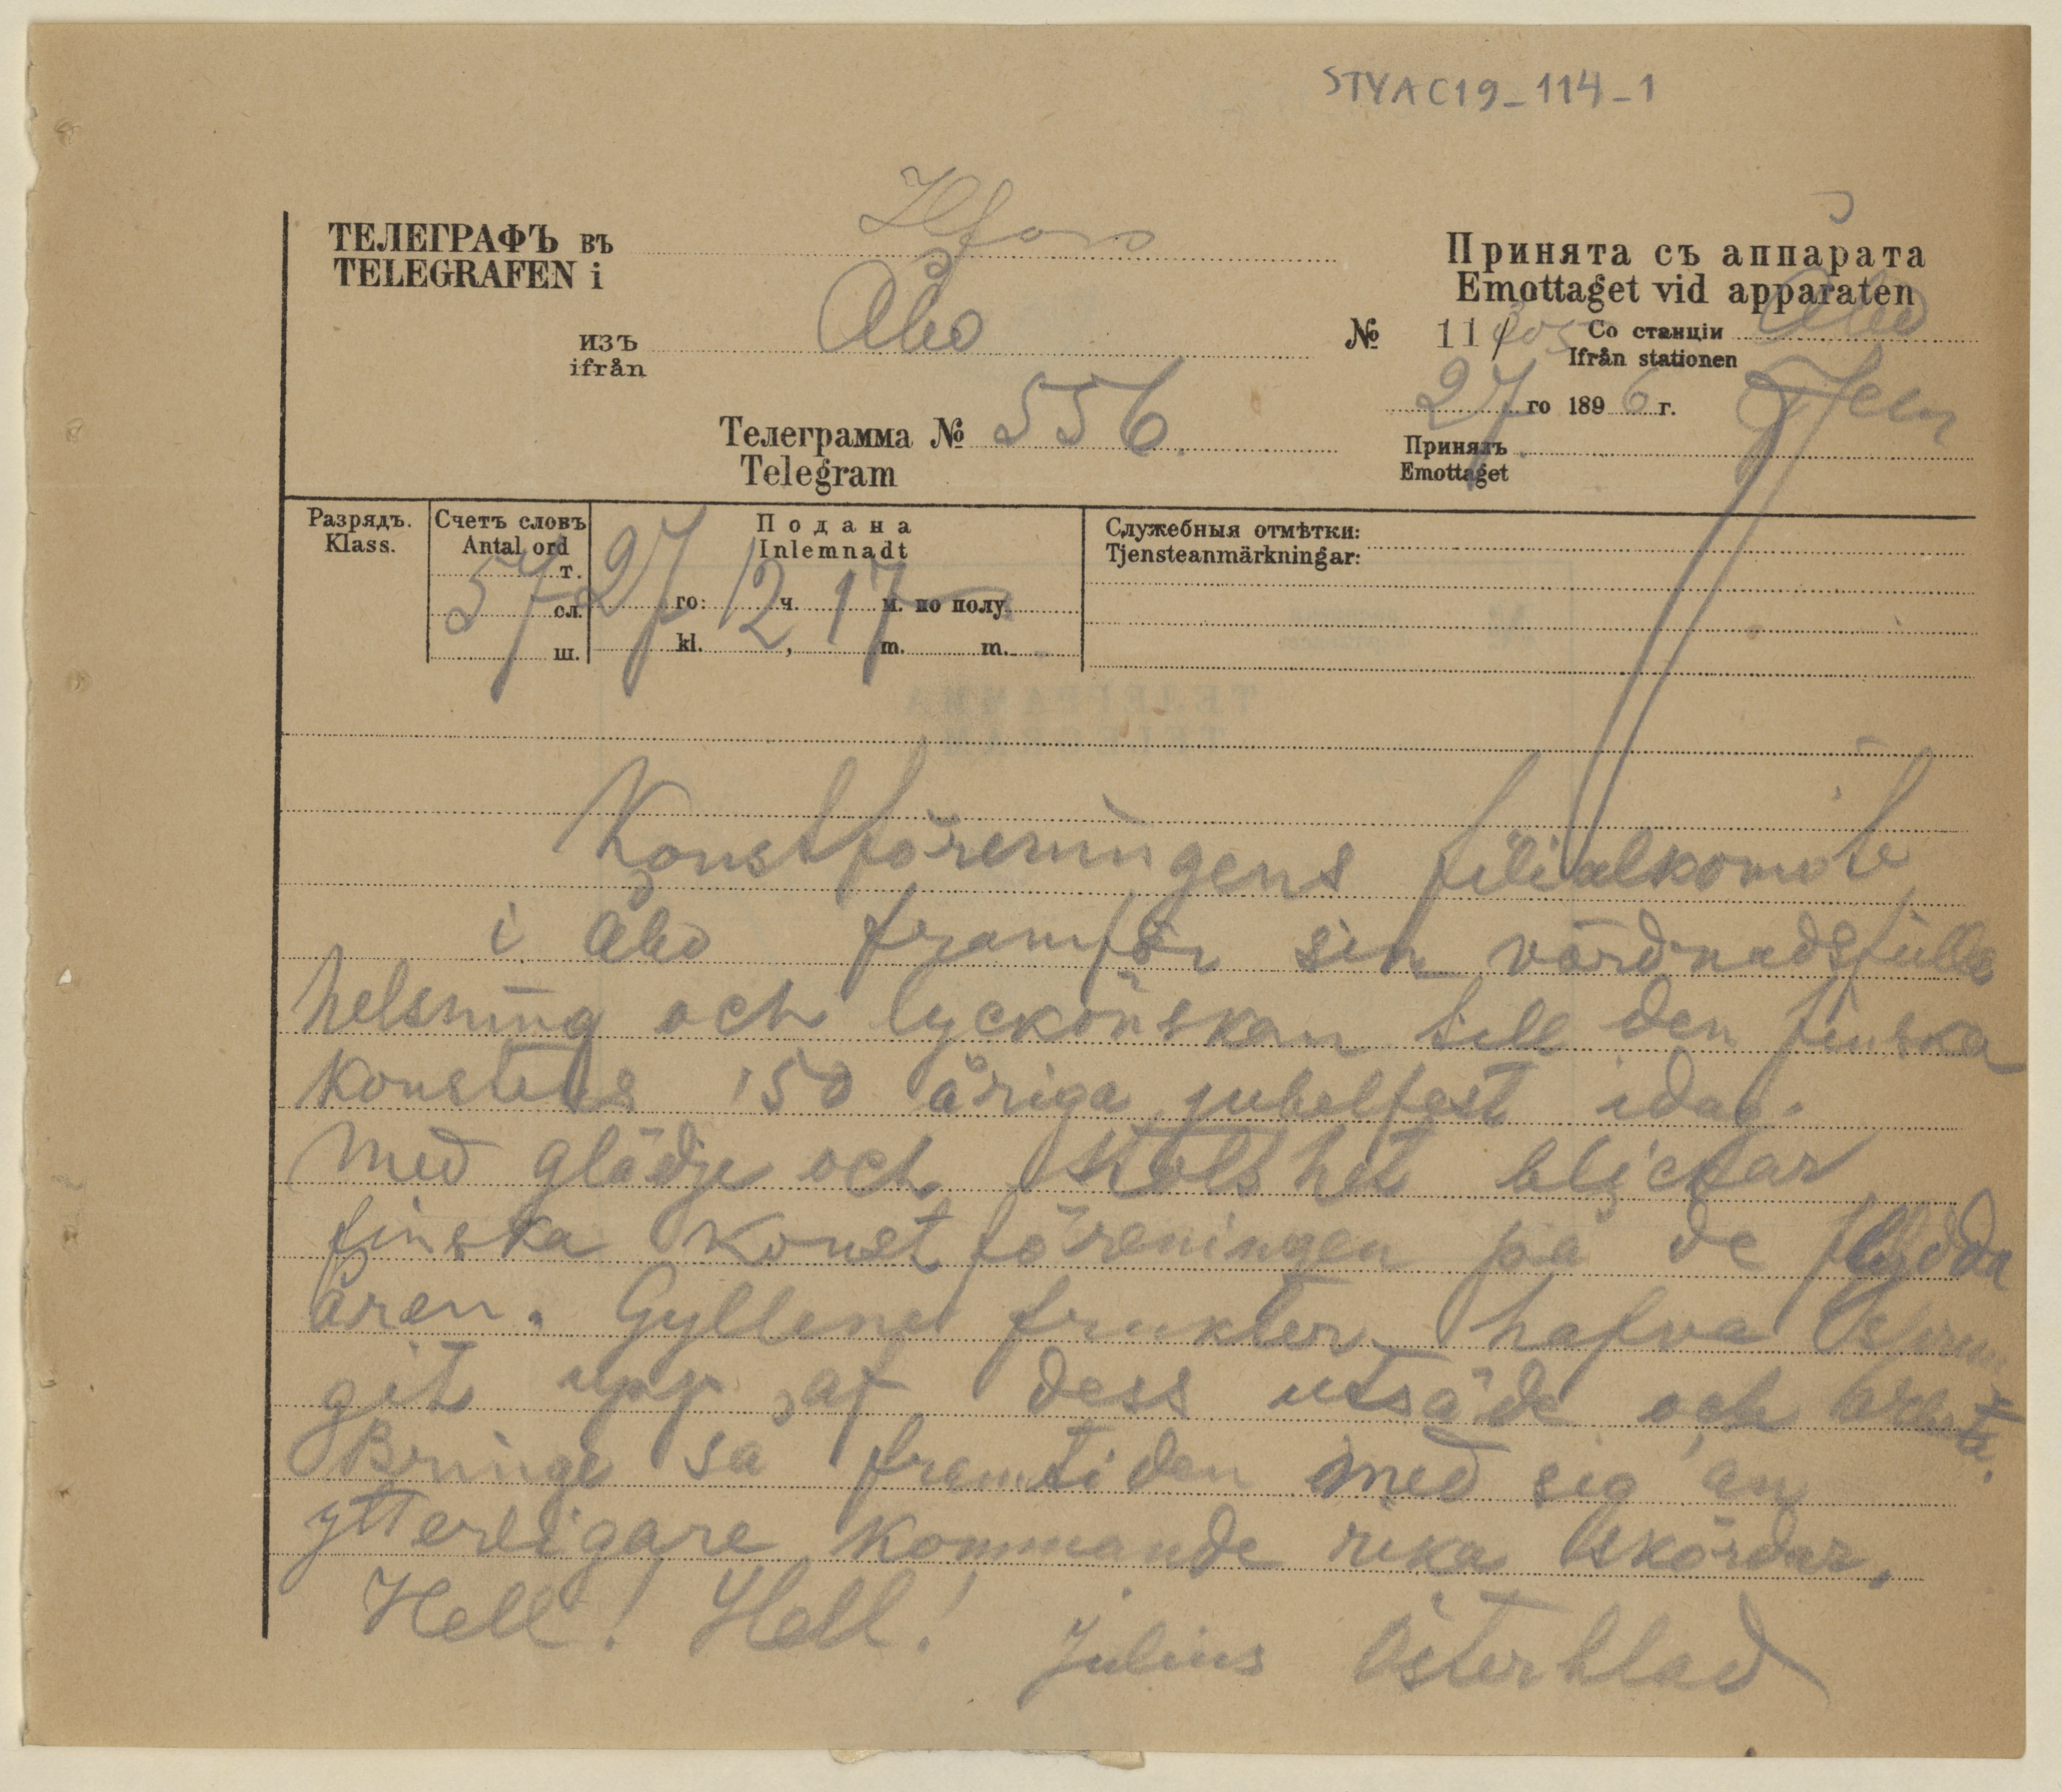 STYAC19-114-1
ТЕЛЕГРАФЪ въ Hfors
TELEGRAFEN i
изъ Åbo
ifrån
Телеграмма № 556.
Telegram
Принята съ аппарата
Emottaget vid apparaten
№ 11 Со станціи Åbo
Ifrån stationen
27 го 1896 г.
Принялъ
Emottaget
Разрядъ.
Klass.
Счетъ словъ
Antal ord
т.
57 сл.
ш.
Подана
Inlemnadt
27 го: 12 ч. 17 м. по полу
kl. , m. m.
Служебныя отмѣтки:
Tjensteanmärkningar:
Konstföreningens filialkomite
i Åbo framför sin vördnadsfulla
helsning och lyckönskan till den finska
konstens 150 åriga jubelfest idag.
Med glädje och stolthet blickar
finska konstföreningen på de flydda
åren. Gyllene frukter hafva sprun
git upp af dess utsäde och arbete.
Bringe så framtiden med sig än
ytterligare kommande rika skördar.
Hell! Hell!
Julius Österblad